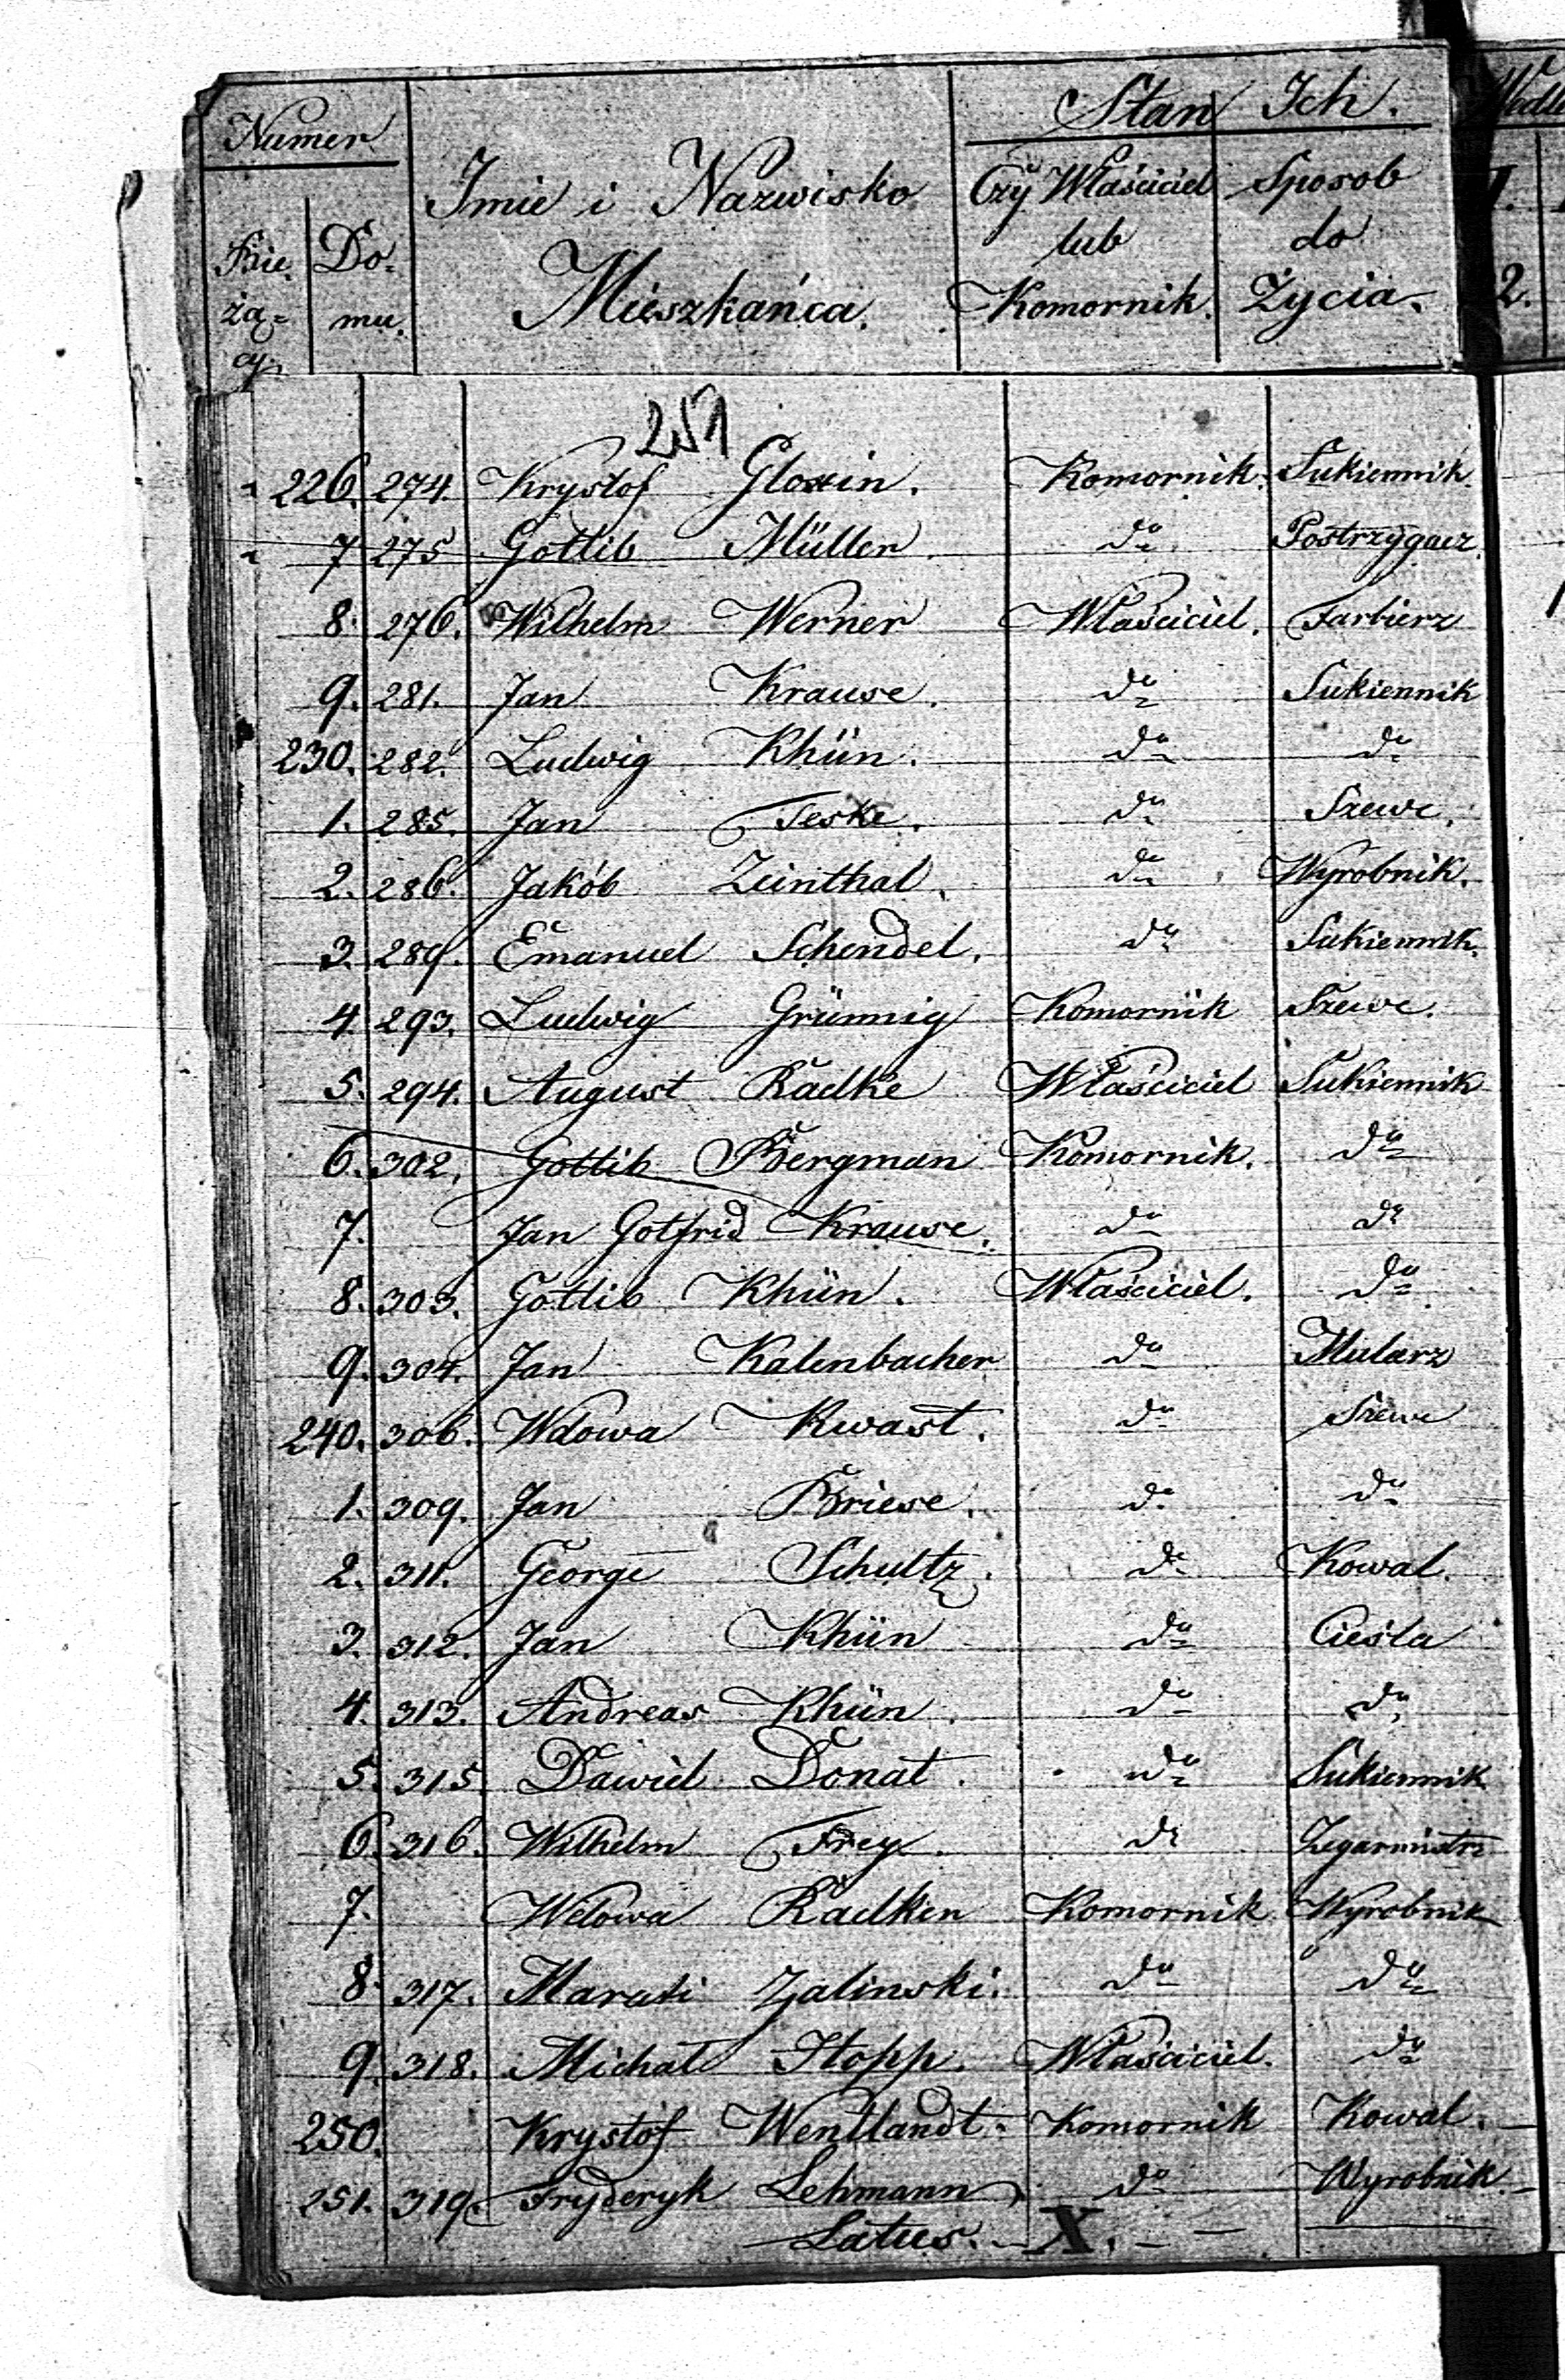 Numer
Stan Ich.
Bie-
żą=
cy
Do-
mu.
Imie i Nazwisko
Mieszkańca.
Czy Właściciel
lub
Komornik.
Sposob
do
Życia.
251
226. 274. Krystof Gloxin. Komornik. Sukiennik.
7 275 Gottlib Müller. do Postrzygacz.
8. 276. Wilhelm Werner Właściciel. Farbierz
9. 281. Jan Krause. do Sukiennik
230. 282. Ludwig Khün. do do
1. 285. Jan Teske. do Szewc.
2. 286. Jakób Zeinthal. do Wyrobnik.
3. 289. Emanuel Schendel. do Sukiennik.
4 293. Ludwig Grünnig Komornik Szewc.
5. 294. August Radke Właściciel Sukiennik
6. 302. Gottlib Bergman Komornik. do
7. Jan Gotfrid Krause. do do
8. 303. Gottlib Khün. Właściciel. do
9. 304. Jan Kalenbacher do Mularz
240. 306. Wdowa Kwast. do Szewc
1. 309. Jan Briese. do do
2. 311. George Schultz. do Kowal.
3. 312. Jan Khün do Cieśla
4. 313. Andreas Khün. do do
5. 315 Dawid Donat. do Sukiennik
6. 316. Wilhelm Frey. do Zegarmistrz
7. Wdowa Radken Komornik Wyrobnik
8. 317. Zalinski. do do
9. 318. Michał Stopp. Właściciel. do
250. Krystof Wentlandt. Komornik Kowal.
251. 319. Fryderyk Lehmann do Wyrobnik.
Latus. X.